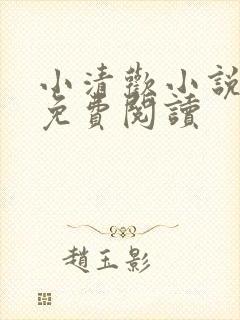 小清歡小說
免費閱讀
趙玉影